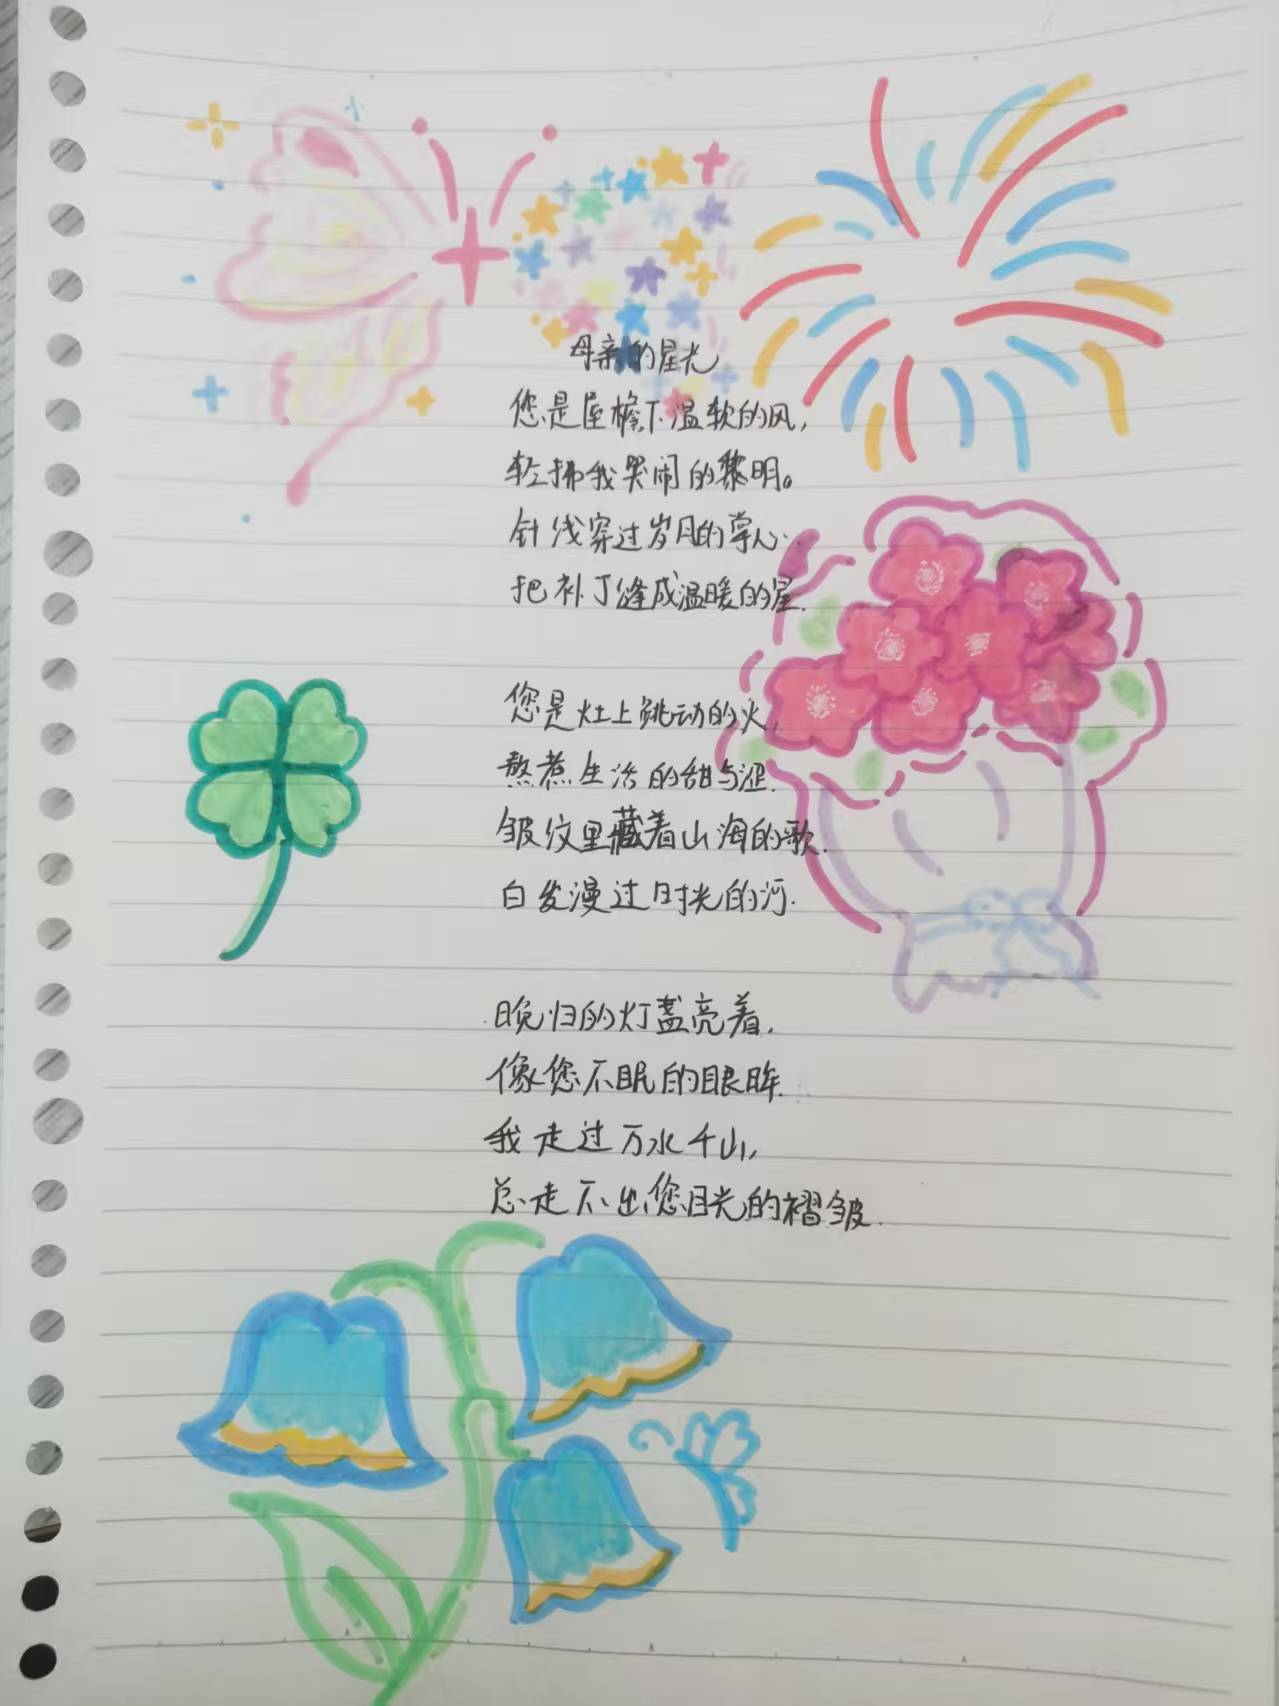 母亲的星光
您是屋檐下温软的风，
轻拂我哭闹的黎明。
针线穿过岁月的掌心.
把补丁缝成温暖的星.
您是灶上跳动的火,
熬煮生活的甜与涩.
皱纹里藏着山海的歌.
白发漫过时光的河.
晚归的灯盏亮着,
像您不眠的眼眸.
我走过万水千山,
总走不出您目光的褶皱.